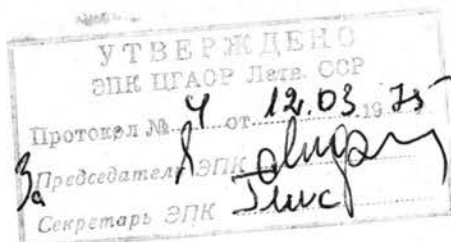 УТВЕРЖДЕНО
ЭПК ЦГАОР Латв. ССР
Протокол № 4 от 12.03.1975
За Председатель ЭПК
Секретарь ЭПК